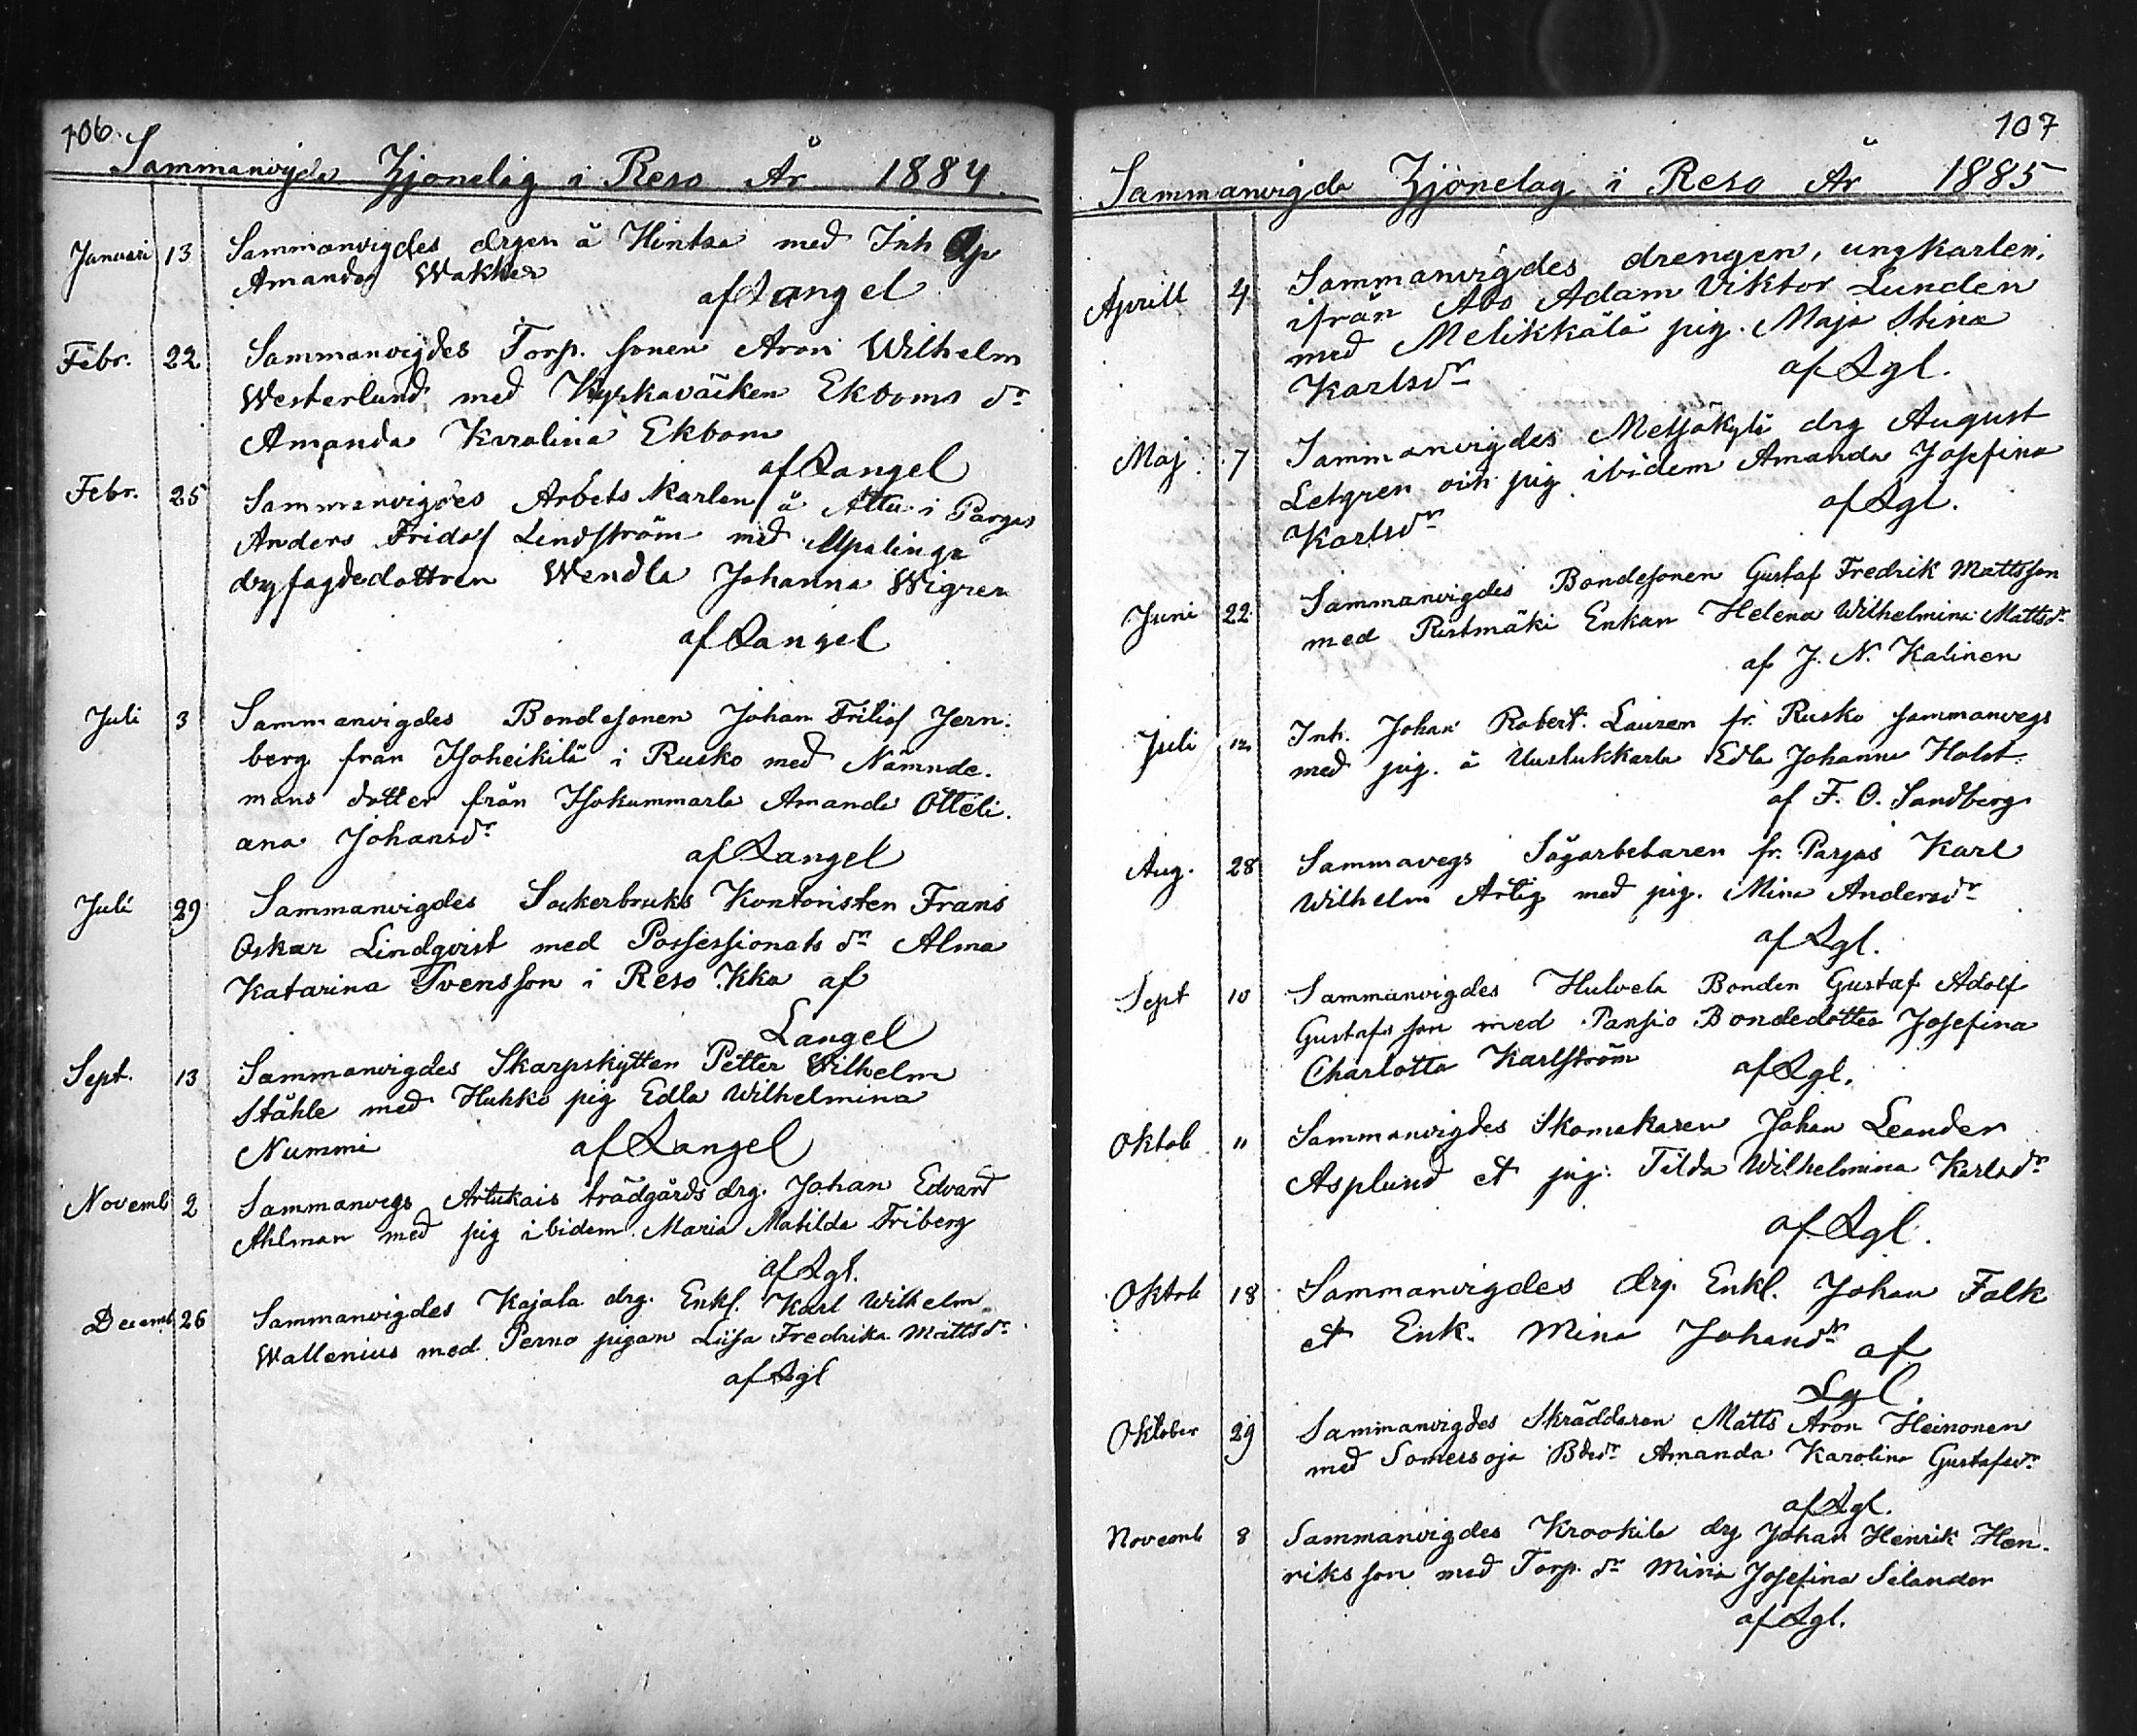 106.
Sammanvigda Hjonelag i Reso År 1884.
Januari 13 Sammanvigdes drgen å Hintsa med Inh
Amanda Wakker
af Langel
Febr. 22 Sammanvigdes Torp. sonen Aron Wilhelm
Westerlund med Kyrkoväcken Ekboms dr
Amanda Karolina Ekbom
af Langel
Febr. 25 Sammanvigdes Arbets Karlen å Attu i Pargas
Anders Fridolf Lindström med Upalinga
drg fagdedottren Wendla Johanna Wigren
af Langel
Juli 3 Sammanvigdes Bondesonen Johan Fritiof Jern-
berg från Isoheikilä i Rusko med Nämnde-
mans dotter från Isokummarla Amanda Otteli-
ana Johansdr
af Langel
Juli 29 Sammanvigdes Sockerbruks Kontoristen Frans
Oskar Lindqvist med Possessionats dr Alma
Katarina Svensson i Reso Kka af
Langel
Sept. 13 Sammanvigdes Skarpskytten Petter Wilhelm
Ståhle med Huhko pig Edla Wilhelmina
Nummi af Langel
Novemb 2 Sammanvegs Artukais trädgårds drg. Johan Edvard
Ahlman med pig ibidem Maria Matilda Friberg
af Lgl.
Decemb 26 Sammanvigdes Kajala drg. Enkl. Karl Wilhelm
Wallenius med Perno pigan Liisa Fredrika Mattsdr
af Lgl
107
Sammanvigda Hjonelag i Reso År 1885
Aprill 4 Sammanvigdes drengen, ungkarlen,
ifrån Åbo Adam Viktor Lunden
med Melikkälä pig. Maja Stina
Karlsdr af Lgl.
Maj 7 Sammanvigdes Metsäkyli drg August
Letgren och pig ibidem Amanda Josefina
Karlsdr af Lgl.
Juni 22 Sammanvigdes Bondesonen Gustaf Fredrik Mattsson
med Ristmäki Enkan Helena Wilhelmina Mattsdr
af J. N. Kalinen
Juli 12 Inh. Johan Robert Lauren fr. Rusko sammanvegs
med pig. å Uuslukkarla Edla Johanna Holst
af F. O. Sandberg
Aug. 28 Sammavegs Sågarbetaren fr. Pargas Karl
Wilhelm Artig med pig. Mina Andersdr
af Lgl.
Sept 10 Sammanvigdes Hulvela Bonden Gustaf Adolf
Gustafsson med Pansio Bondedotter Josefina
Charlotta Karlström af Lgl.
Oktob 11 Sammanvigdes Skomakaren Johan Leander
Asplund et pig: Tilda Wilhelmina Karlsdr
af Lgl.
Oktob 18 Sammanvigdes drg. Enkl. Johan Falk
et Enk. Mina Johansdr af
Lgl.
Oktober 29 Sammanvigdes Skräddaren Matts Aron Heinonen
med Somersoja Bdr Amanda Karolina Gustafsdr
af Lgl.
Novemb 8 Sammanvigdes Krookila drg Johan Henrik Hen-
riksson med Torp. dr Mina Josefina Selander
af Lgl.